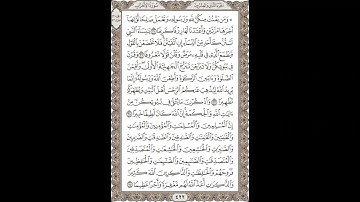 الجزء الثاني والعشرون سورة الأحزاب
۞ وَمَن يَقْنُتْ مِنكُنَّ لِلَّهِ وَرَسُولِهِۦ وَتَعْمَلْ صَٰلِحًا نُّؤْتِهَآ
أَجْرَهَا مَرَّتَيْنِ وَأَعْتَدْنَا لَهَا رِزْقًا كَرِيمًا ٣١ يَٰنِسَآءَ ٱلنَّبِيِّ
لَسْتُنَّ كَأَحَدٍ مِّنَ ٱلنِّسَآءِ إِنِ ٱتَّقَيْتُنَّ فَلَا تَخْضَعْنَ بِٱلْقَوْلِ
فَيَطْمَعَ ٱلَّذِى فِى قَلْبِهِۦ مَرَضٌ وَقُلْنَ قَوْلًا مَّعْرُوفًا ٣٢ وَقَرْنَ
فِى بُيُوتِكُنَّ وَلَا تَبَرَّجْنَ تَبَرُّجَ ٱلْجَٰهِلِيَّةِ ٱلْأُولَىٰ وَأَقِمْنَ
ٱلصَّلَوٰةَ وَءَاتِينَ ٱلزَّكَوٰةَ وَأَطِعْنَ ٱللَّهَ وَرَسُولَهُۥٓ إِنَّمَا
يُرِيدُ ٱللَّهُ لِيُذْهِبَ عَنكُمُ ٱلرِّجْسَ أَهْلَ ٱلْبَيْتِ وَيُطَهِّرَكُمْ
تَطْهِيرًا ٣٣ وَٱذْكُرْنَ مَا يُتْلَىٰ فِى بُيُوتِكُنَّ مِنْ
ءَايَٰتِ ٱللَّهِ وَٱلْحِكْمَةِ إِنَّ ٱللَّهَ كَانَ لَطِيفًا خَبِيرًا ٣٤
إِنَّ ٱلْمُسْلِمِينَ وَٱلْمُسْلِمَٰتِ وَٱلْمُؤْمِنِينَ وَٱلْمُؤْمِنَٰتِ
وَٱلْقَٰنِتِينَ وَٱلْقَٰنِتَٰتِ وَٱلصَّٰدِقِينَ وَٱلصَّٰدِقَٰتِ وَٱلصَّٰبِرِينَ
وَٱلصَّٰبِرَٰتِ وَٱلْخَٰشِعِينَ وَٱلْخَٰشِعَٰتِ وَٱلْمُتَصَدِّقِينَ
وَٱلْمُتَصَدِّقَٰتِ وَٱلصَّٰٓئِمِينَ وَٱلصَّٰٓئِمَٰتِ وَٱلْحَٰفِظِينَ
فُرُوجَهُمْ وَٱلْحَٰفِظَٰتِ وَٱلذَّٰكِرِينَ ٱللَّهَ كَثِيرًا
وَٱلذَّٰكِرَٰتِ أَعَدَّ ٱللَّهُ لَهُم مَّغْفِرَةً وَأَجْرًا عَظِيمًا ٣٥
٤٢٢